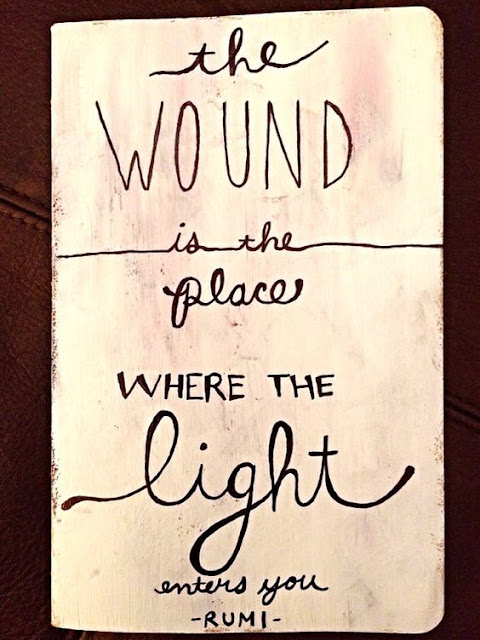 the
WOUND
is the
place
WHERE THE
light
enters you
-RUMI-